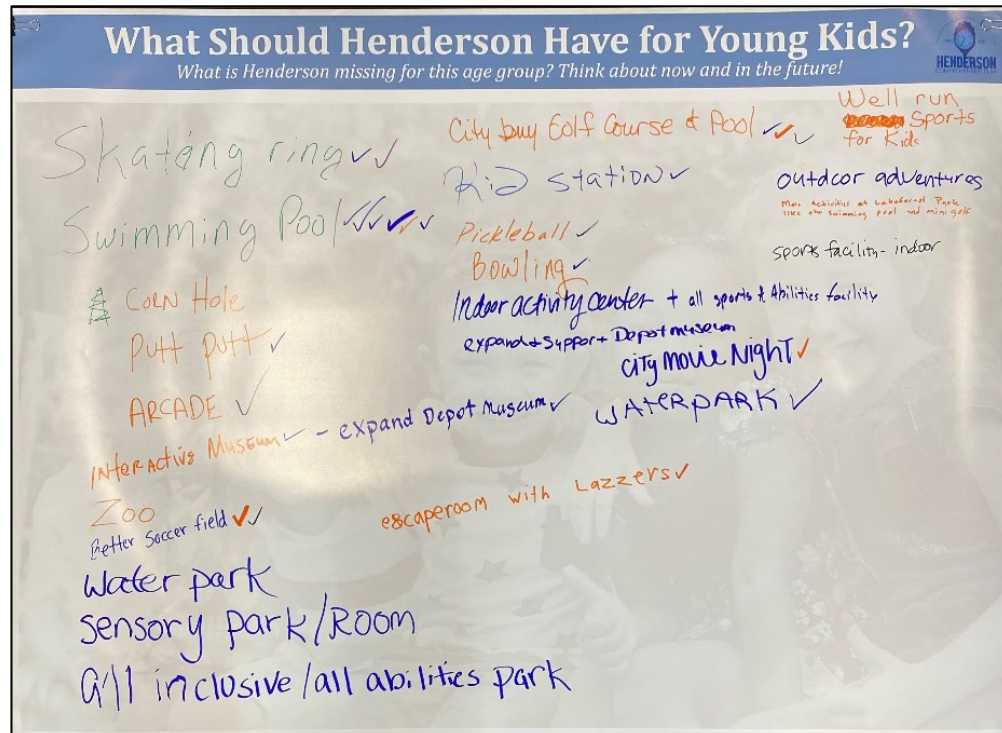 What Should Henderson Have for Young Kids?
What is Henderson missing for this age group? Think about now and in the future!
HENDERSON
COMPREHENSIVE PLAN
Skateng ring
Swimming Pool
CORN Hole
Putt putt
ARCADE
INterActive Museum - expand Depot Museum
Zoo
Better Soccer field
Water park
Sensory park/ROOM
all inclusive/all abilities park
City buy Golf Course & Pool
Kid StatioN
Pickleball
Bowling
Indoor activity center + all sports & Abilities facility
expand + Support Depot museum
City Movie Night
WAterpARK
escaperoom with Lazzers
Well run
Sports
for Kids
outdoor adventures
More activities at Lakeforest Park
like the swimming pool and mini golf
sports facility - indoor